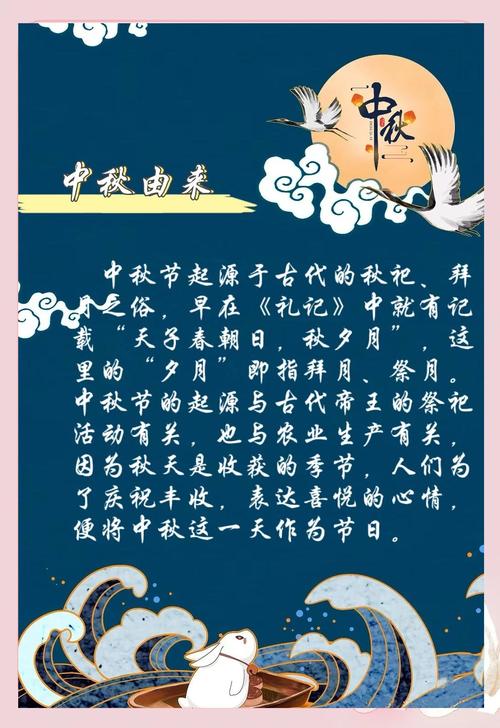 中秋
中秋由来
中秋节起源于古代的秋祀、拜
月之俗，早在《礼记》中就有记
载“天子春朝日，秋夕月”，这
里的“夕月”即指拜月、祭月。
中秋节的起源与古代帝王的祭祀
活动有关，也与农业生产有关，
因为秋天是收获的季节，人们为
了庆祝丰收，表达喜悦的心情，
便将中秋这一天作为节日。